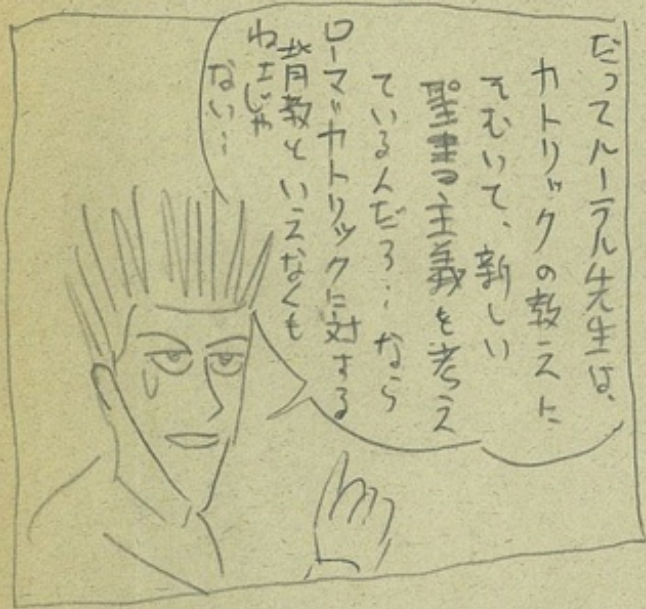 だってルーテル先生は、
カトリックの教えに
そむいて、新しい
聖書主義を考え
ているんだろ…なら
ローマ・カトリックに対する
背教といえなくも
ねェじゃ
ない…